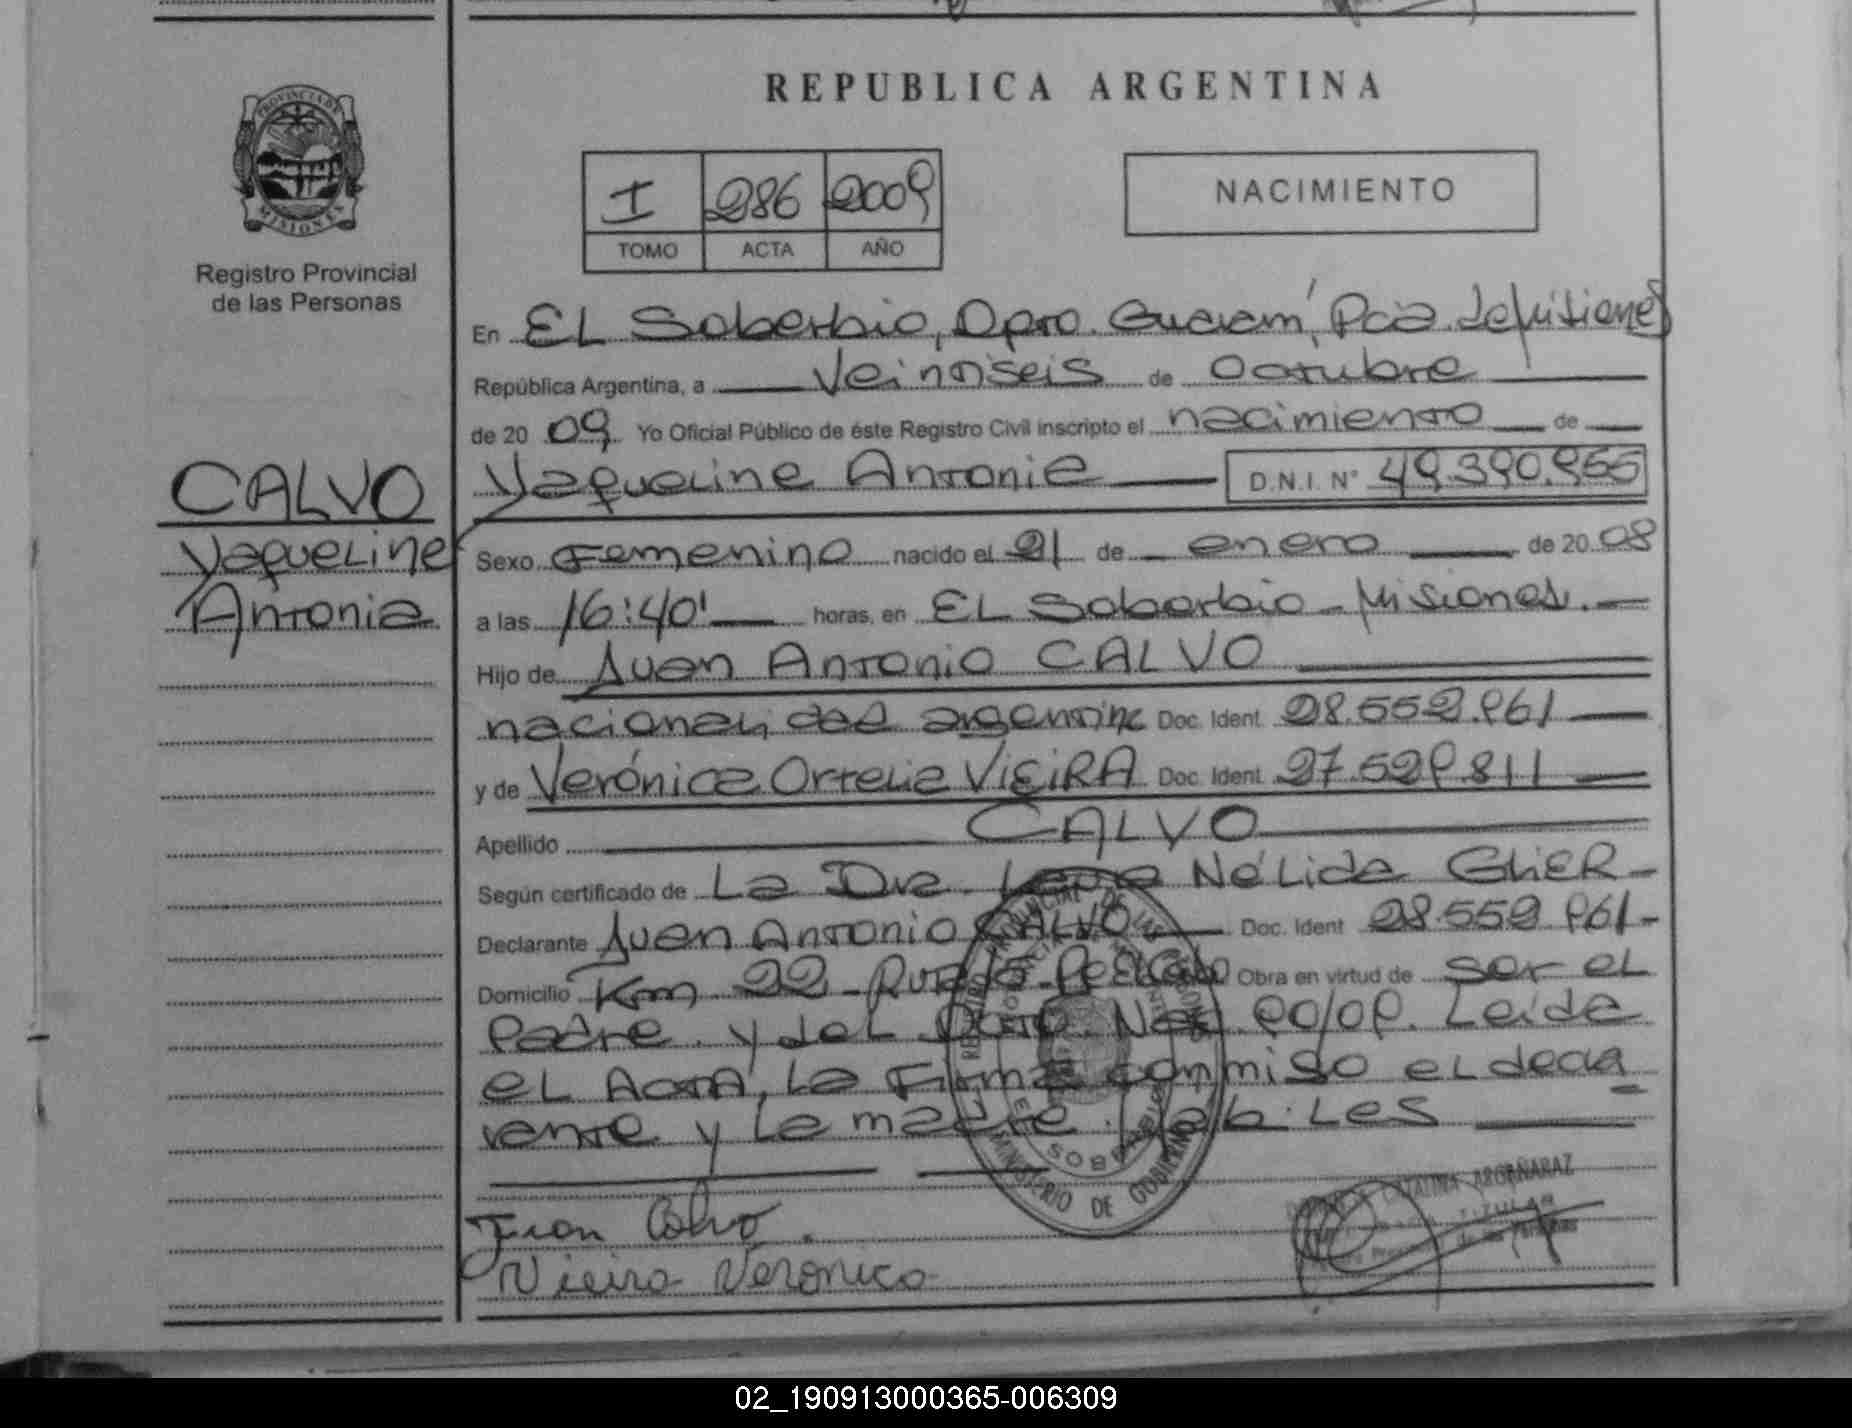 REPUBLICA ARGENTINA
PROVINCIA DE
MISIONES
Registro Provincial
de las Personas
I 286 2009
TOMO ACTA AÑO
NACIMIENTO
En EL Soberbio, Dpto. Guaraní, Pcia. de Misiones
República Argentina, a Veintiseis de Octubre
de 20 09 Yo Oficial Público de éste Registro Civil inscripto el nacimiento de
CALVO
Yaqueline
Antonia
Yaqueline Antonia D.N.I. N°
Sexo Femenino nacido el 21 de enero de 20 08
a las 16:40' horas, en EL Soberbio - Misiones.
Hijo de Juan Antonio CALVO
nacionalidad argentina Doc. Ident. 28.552.961
y de Verónica Ortelia VIEIRA Doc. Ident. 27.529.811
Apellido CALVO
Según certificado de La Dra. Nélida GLIER
Declarante Juan Antonio CALVO Doc. Ident 28.552.961-
Domicilio Km 22 - Ruta Obra en virtud de ser el
Padre. y del Leida
el Acta, la Firma conmigo el decla
rante y la madre. Habiles
MINISTERIO DE GOBIERNO
CATALINA ARGAÑARAZ
Juan Calvo.
Vieira Veronica
02_190913000365-006309